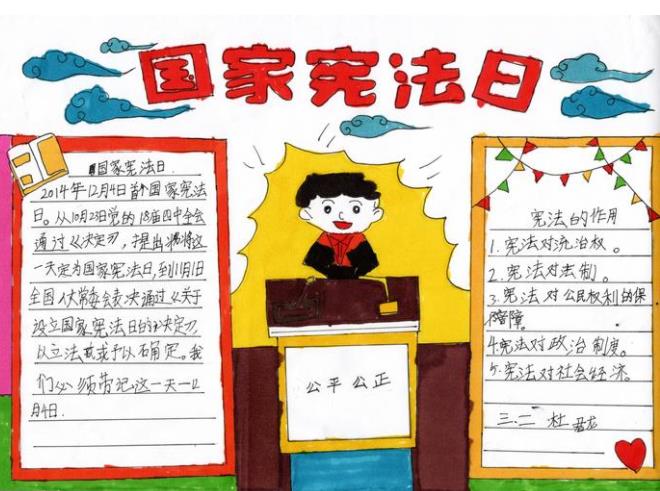 国家宪法日
国家宪法日.
2014年12月4日首个国家宪法
日。从10月23日党的18届四中全会
通过《决定》，提出将这
一天定为国家宪法日，到11月1日
全国人大常委会表决通过《关于
设立国家宪法日的决定》
以立法形式予以确定。我
们必须带记这一天—12
月4日.
公平公正
宪法的作用
1.宪法对统治权。
2.宪法对法制。
3.宪法对公民权利的保
障。
4.宪法对政治制度。
5.宪法对社会经济。
三.二 杜